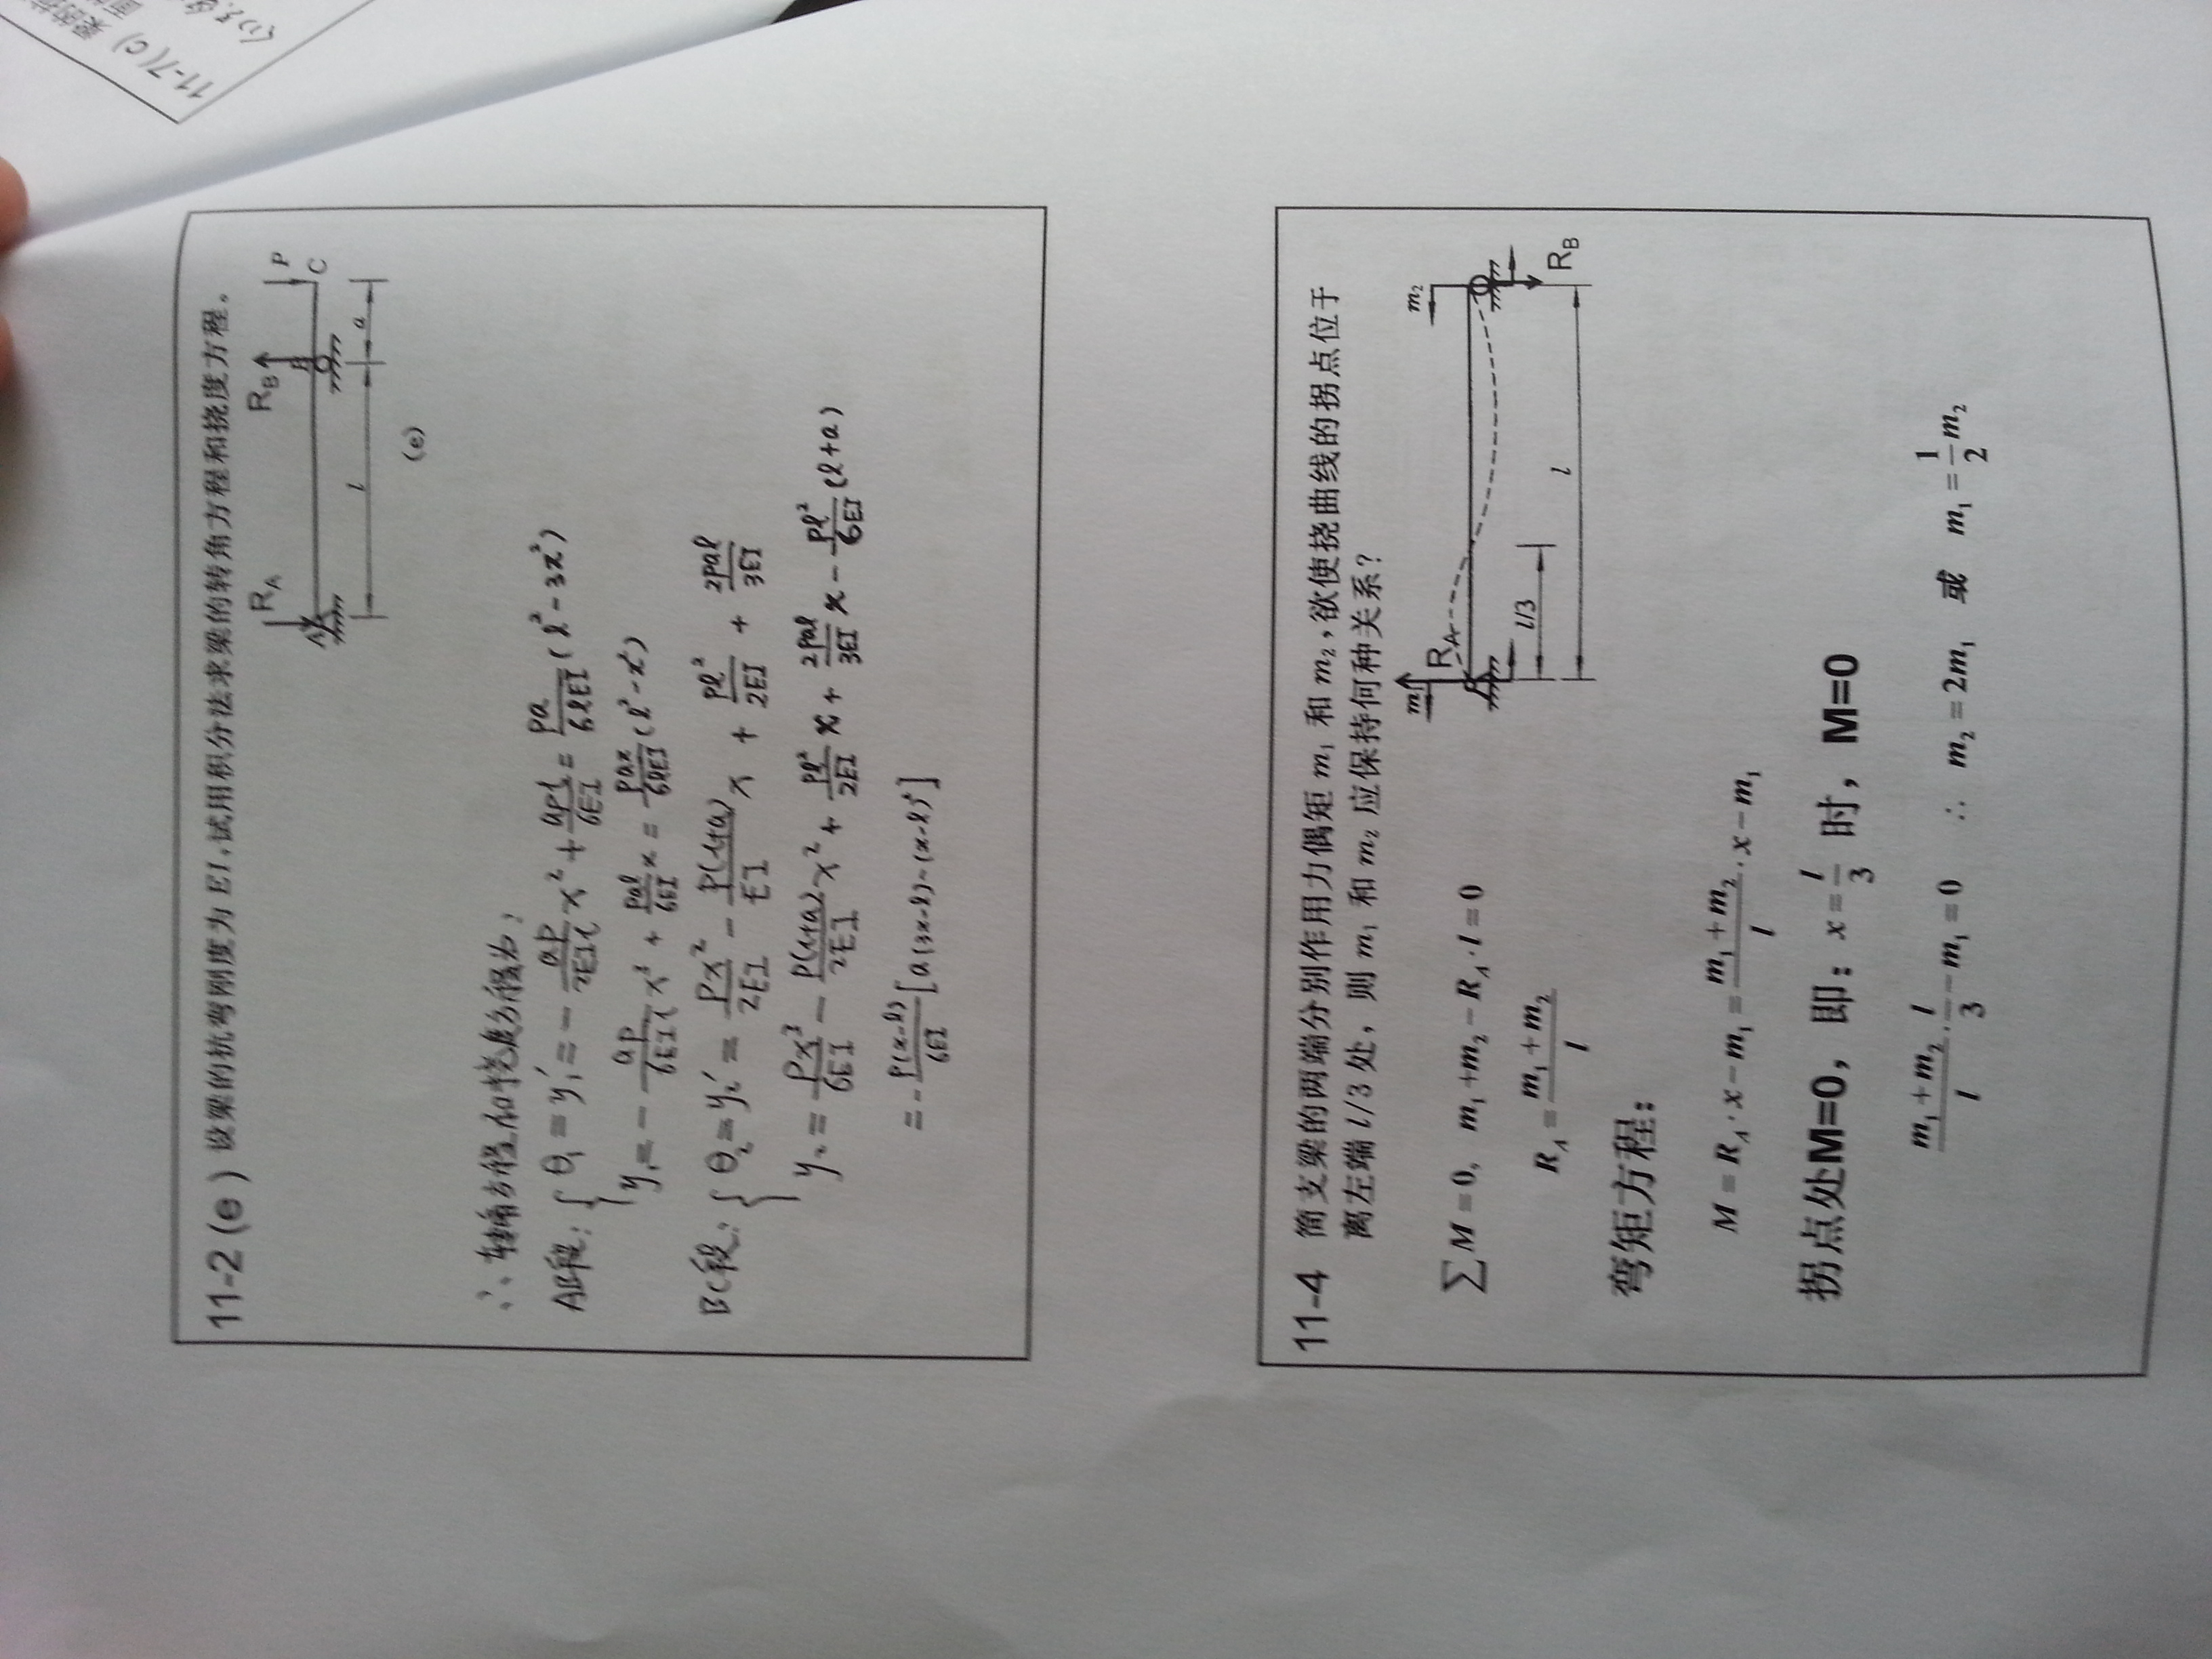 11-2（e）设梁的抗弯刚度为 EI,试用积分法求梁的转角方程和挠度方程。
R_A R_B P
A B C
l a
(e)
∴ 转角方程和挠度方程为:
AB段: { θ₁ = y₁' = - \frac{aP}{2EIl}x² + \frac{aPl}{6EI} = \frac{Pa}{6lEI}(l² - 3x²)
y₁ = - \frac{aP}{6EIl}x³ + \frac{Pal}{6EI}x = \frac{Pax}{6lEI}(l² - x²)
BC段: { θ₂ = y₂' = \frac{Px²}{2EI} - \frac{P(l+a)}{EI}x + \frac{Pl²}{2EI} + \frac{2Pal}{3EI}
y₂ = \frac{Px³}{6EI} - \frac{P(l+a)}{2EI}x² + \frac{Pl²}{2EI}x + \frac{2Pal}{3EI}x - \frac{Pl²}{6EI}(l+a)
= - \frac{P(x-l)}{6EI}[a(3x-l)-(x-l)²]
11-4 简支梁的两端分别作用力偶矩 m₁ 和 m₂,欲使挠曲线的拐点位于
离左端 l/3 处，则 m₁ 和 m₂ 应保持何种关系？
m₁ R_A m₂
l/3
l R_B
∑M = 0, m₁+m₂ − R_A · l = 0
R_A = \frac{m₁ + m₂}{l}
弯矩方程：
M = R_A · x − m₁ = \frac{m₁ + m₂}{l} · x − m₁
拐点处M=0，即：x = \frac{l}{3} 时，M=0
\frac{m₁ + m₂}{l} · \frac{l}{3} − m₁ = 0 ∴ m₂ = 2m₁ 或 m₁ = \frac{1}{2}m₂
11-7(C)